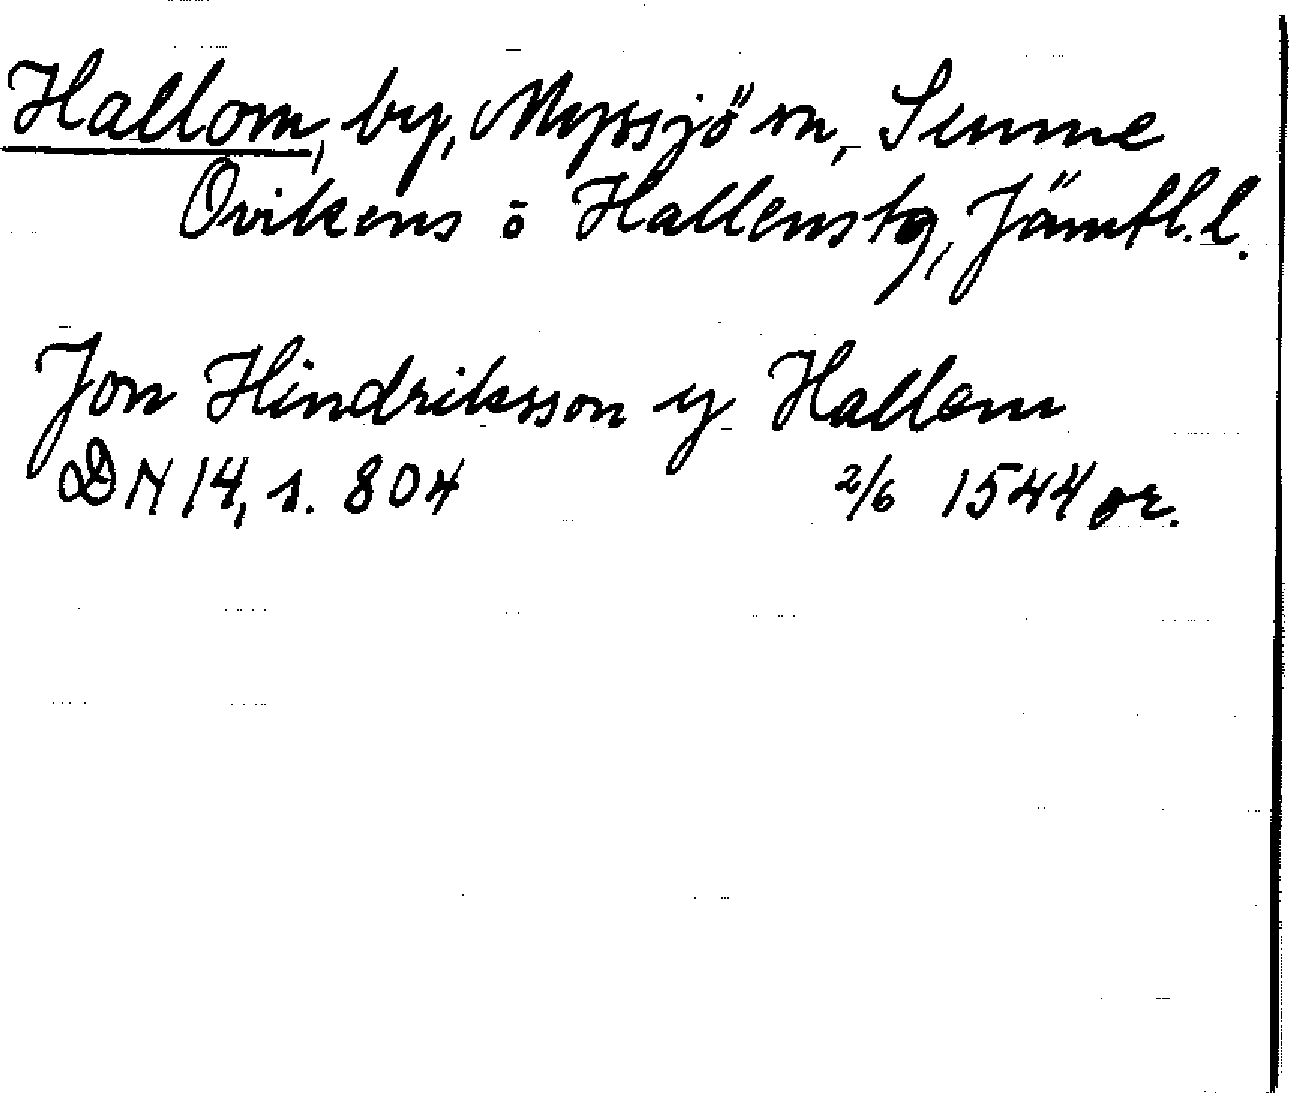 Hallom, by, Myssjö sn, Sunne
Ovikens o Hallenstg, Jämtl. l.
Jon Hindriksson y Hallom
DN 14, s. 804 2/6 1544 or.